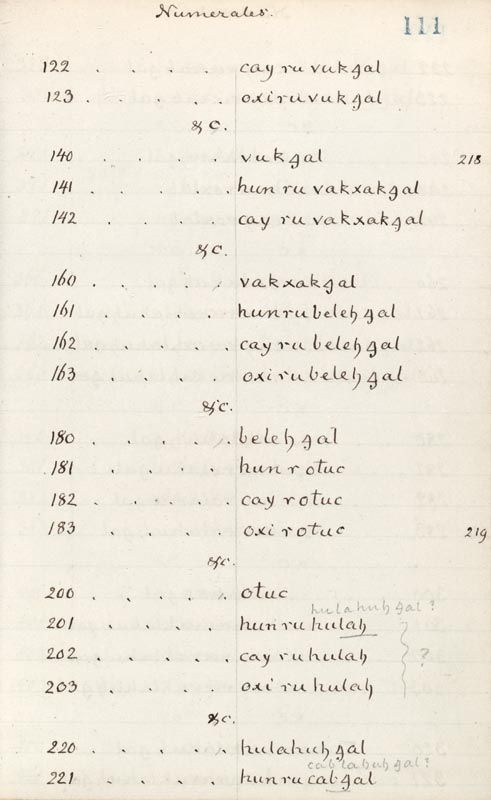 Numerales.
111
122 . . . . cay ru vukgal
123 . . . . oxi ru vukgal
&c.
140 . . . . vukgal 218
141 . . . . hun ru vakxakgal
142 . . . . cay ru vakxakgal
&c.
160 . . . . vakxakgal
161 . . . . hun ru beleh gal
162 . . . . cay ru beleh gal
163 . . . . oxi ru beleh gal
&c.
180 . . . . beleh gal
181 . . . . hun r otuc
182 . . . . cay r otuc
183 . . . . oxi r otuc 219
&c.
200 . . . . otuc
hulahuh gal?
201 . . . . hun ru hulah
202 . . . . cay ru hulah ?
203 . . . . oxi ru hulah
&c.
220 . . . . hulahuh gal
cablahuh gal?
221 . . . . hun ru cabgal